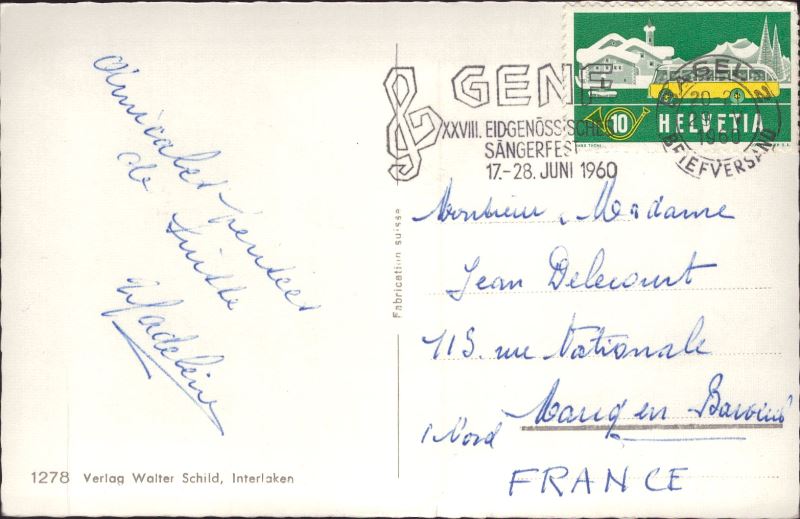 Amicales pensées
de Suisse
Madeleine
1278 Verlag Walter Schild, Interlaken
Fabrication suisse
GENF
XXVIII. EIDGENÖSSISCHES
SÄNGERFEST
17.-28. JUNI 1960
10 HELVETIA
BASEL 2
20-21
29
1960
BRIEFVERSAND
Monsieur, Madame
Jean Delecourt
115. rue Nationale
Marcq en Baroeul
(Nord
FRANCE